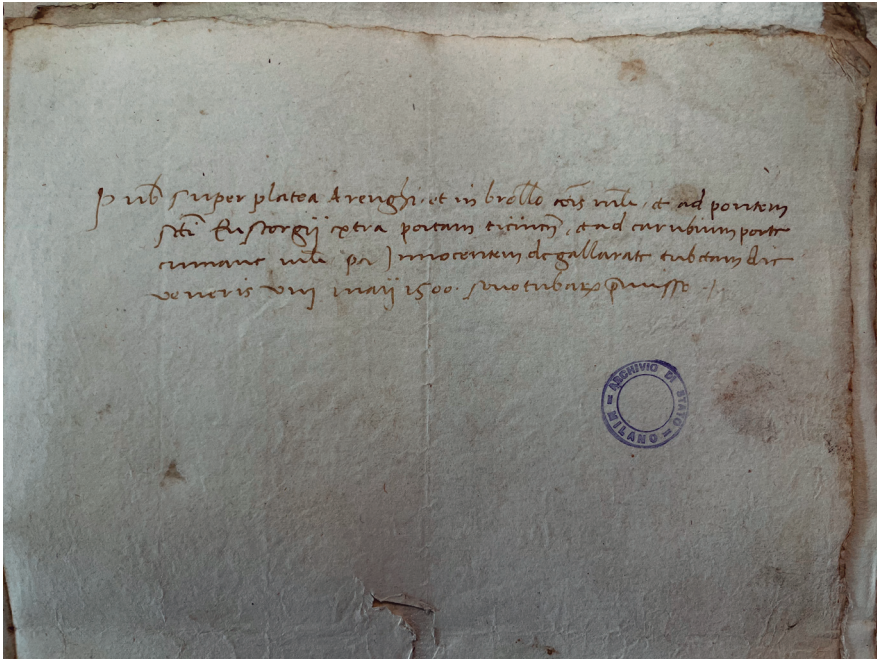 Pub super platea Arenghi. et in brolleto cois mli, et ad pontem
scti Eustorgii extra portam ticinen, et ad carubium porte
cumane mli per Innocentem de gallarate tubetam die
veneris viii maii 1500. sono tubarum premisso
ARCHIVIO DI STATO
MILANO